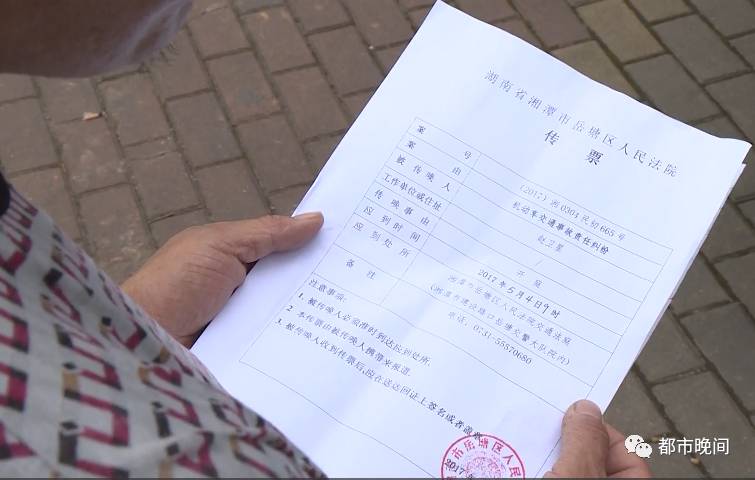 湖南省湘潭市岳塘区人民法院
传 票
案 号 (2017) 湘0303民初665号
案 由 机动车交通事故责任纠纷
被传唤人 赵卫星
工作单位或住址 /
传唤事由 开庭
应到时间 2017年5月4日9时
应到处所 湘潭市岳塘区人民法院交通法庭
(湘潭市建设路口岳塘交警大队院内)
电话:0731-55570680
备 注
注意事项:
1. 被传唤人必须准时到达应到处所.
2. 本传票由被传唤人携带来报道.
3. 被传唤人收到传票后,应在送达回证上签名或者盖
市岳塘区人民
2017年
都市晚间